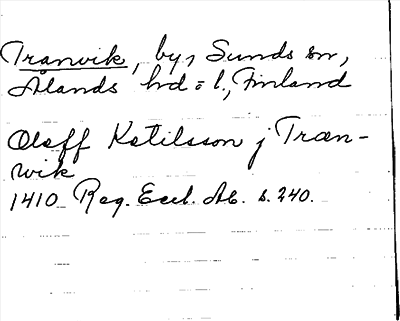 Tranvik, by, Sunds sn,
Ålands hd = l., Finland
Oleff Ketilsson j Tran-
wik
1410 Reg. Eccl. Ab. s. 240.